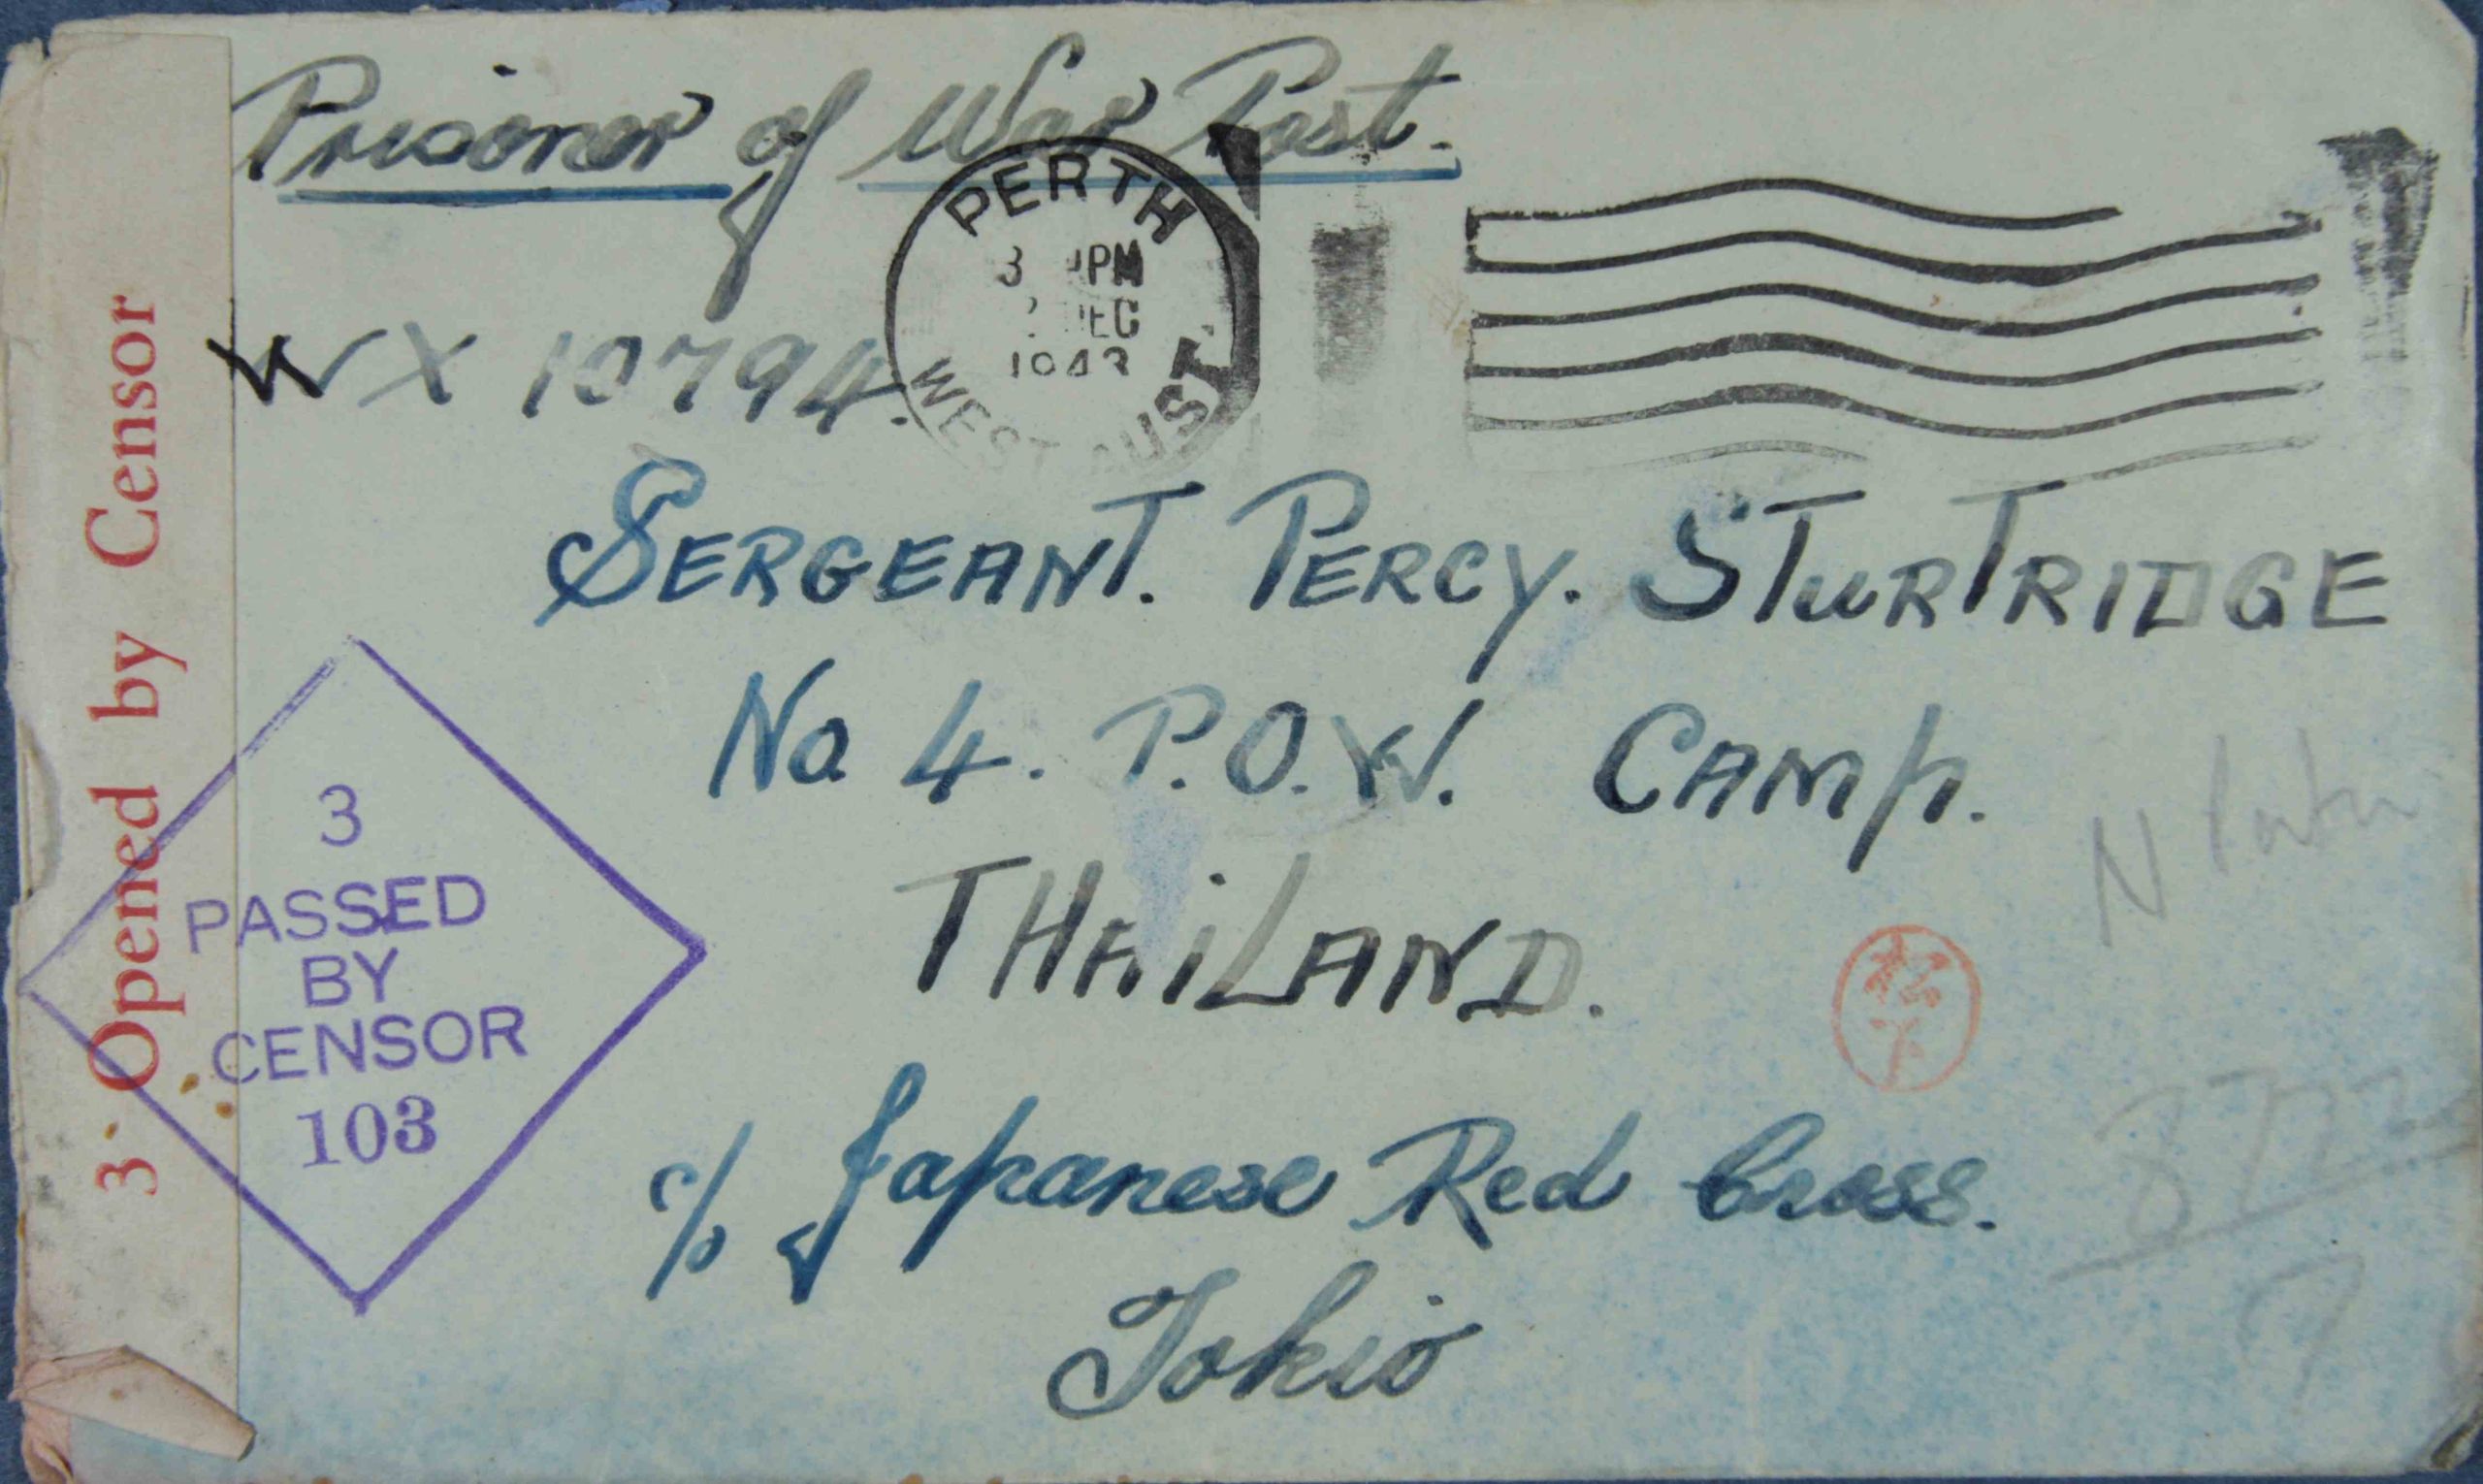 Prisoner of War Post.
PERTH
3 PM
DEC
1943
WEST AUST.
WX 10794.
SERGEANT. PERCY. STURTRIDGE
No 4. P.O.W. CAMP.
THAILAND.
c/o Japanese Red Cross.
Tokio
3 Opened by Censor
3
PASSED
BY
CENSOR
103
松下
N